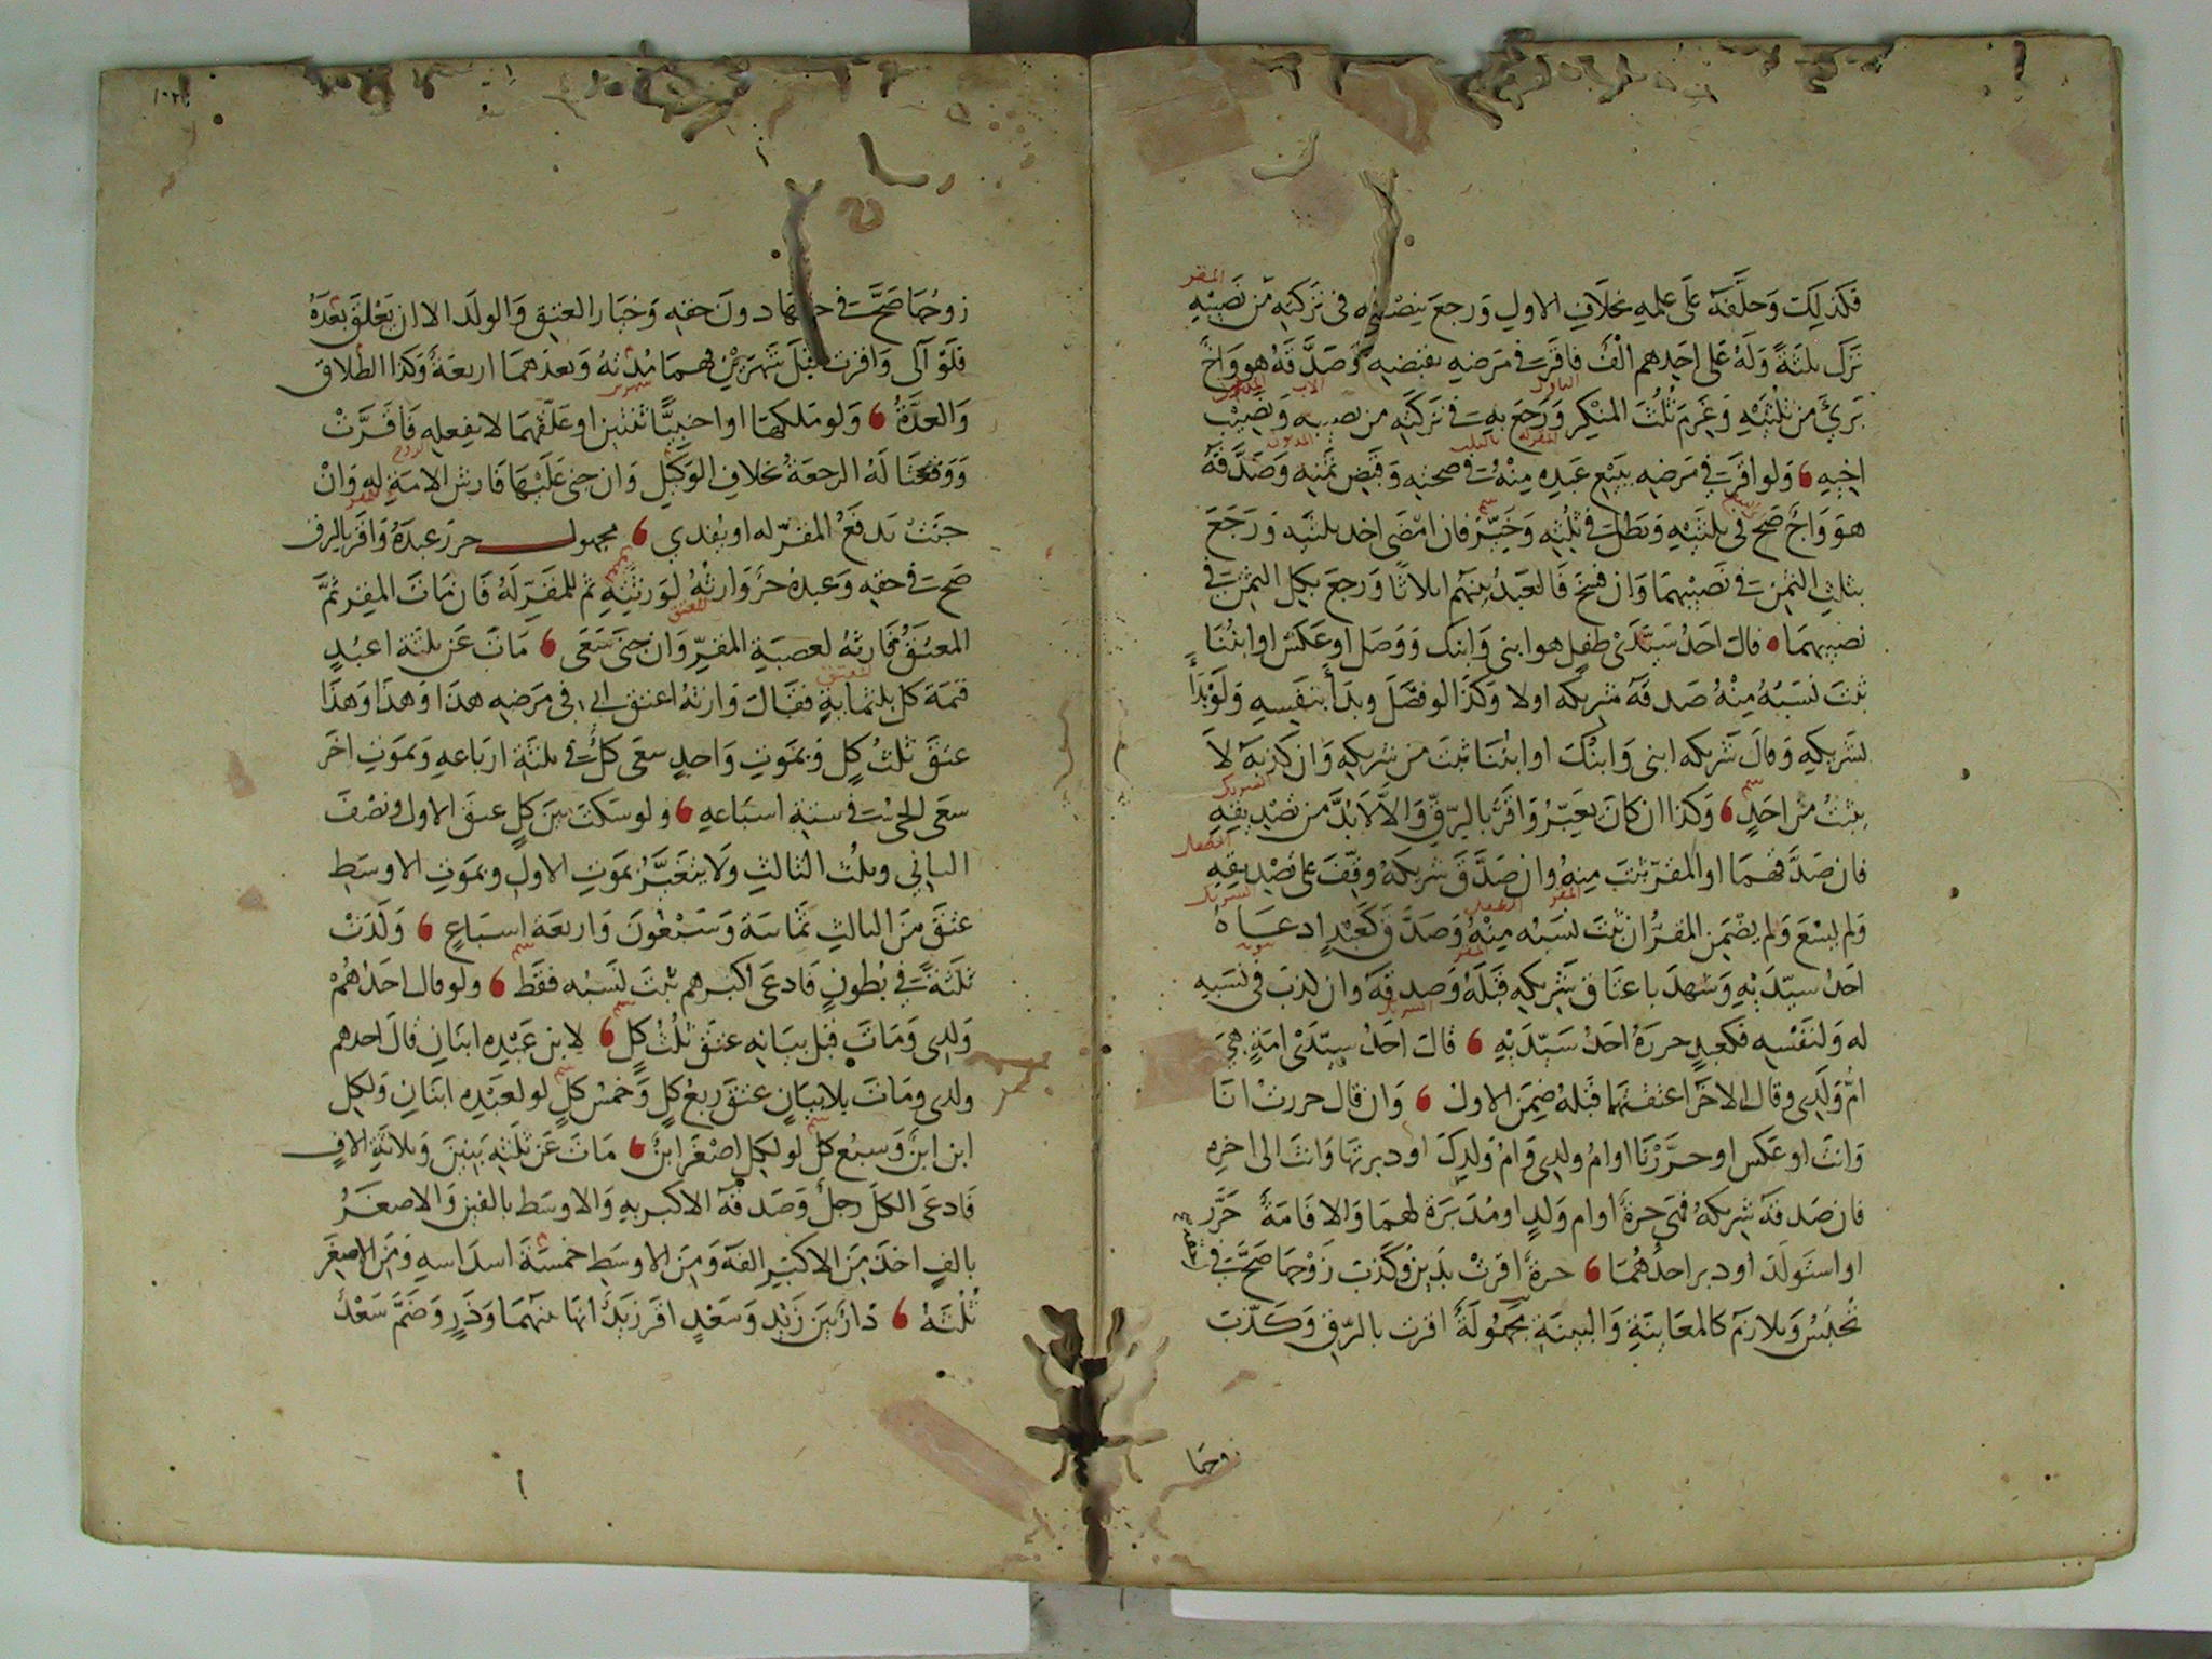 فكذلك وحلفه على علمه بخلاف الاول ورجع بنصفه في تركته من نصيبه
ترك ثلثة وله على احدهم الف فاقر في مرضه بقبضه وصدقه هو واخ
برئ من ثلثيه وغرم ثلث المنكر ورجع به في تركته من نصيبه ونصيب
اخيه ولو اقر في مرضه ببيع عبده منه في صحته وقبض ثمنه وصدقه
هو واخ صح في ثلثيه وبطل في ثلثه وخير فان امضى اخذ ثلثيه ورجع
بثلث الثمن في نصيبهما وان فسخ فالعبد بينهم اثلاثا ورجع بكل الثمن في
نصيبهما قال احد سيدى طفل هو ابنى وابنك ووصل او عكس او ابننا
ثبت نسبه منه صدقه شريكه اولا وكذا لو فصل وبدأ بنفسه ولو بدأ
بشريكه وقال شريكه ابنى وابنك او ابننا ثبت من شريكه وان كذبه لا
يثبت من احد وكذا ان كان يعبر واقر بالرق والا لا بد من تصديقه
فان صدقهما او المقر ثبت منه وان صدق شريكه وقف على تصديقه
ولم يسع ولم يضمن المقر ان ثبت نسبه منه وصدق كعبد ادعاه
احد سيديه وشهد باعتاق شريكه قبله وصدقه وان كذب في نسبه
له ولنفسه فكعبد حرره احد سيديه قال احد سيدى امة هي
ام ولدى وقال الاخر اعتقتها قبله ضمن الاول وان قال حررت انا
وانت او عكس او حررنا او ام ولدى وام ولدك او دبرتها وانت الى اخره
فان صدقه شريكه فهي حرة او ام ولد او مدبرة لهما والا فامة حرر
او استولد او دبر احدهما حرة اقرت بدين وكذب زوجها صحت في
تحبس وتلازم كالمعاينة والبينة مجهولة اقرت بالرق وكذب
زوجها
زوجها صحت في حقها دون حقه وخيار العتق والولد الا ان تعلق بعده
فلو آلى واقرت قبل شهرين فهما مدته وبعدهما اربعة وكذا الطلاق
والعدة ولو ملكها او اجنبيا ثنتين او علقهما لا بفعله فاقرت
ووقعتا له الرجعة بخلاف الوكيل وان جنى عليها فارش الامة له وان
جنت تدفع المقر له او يفدي مجهول حرر عبده واقر بالرق
صح في حقه وعبده حر وارثه لورثته ثم للمقر له فان مات المقر ثم
المعتق فارثه لعصبة المقر وان جنى سعى مات عن ثلثة اعبد
قيمة كل ثلثماية فقال وارثه اعتق ابي في مرضه هذا وهذا وهذا
عتق ثلث كل وبموت واحد سعى كل في ثلثة ارباعه وبموت اخر
سعى الحي في ستة اسباعه ولو سكت بين كل عتق الاول ونصف
الثاني وثلث الثالث ولا يتغير بموت الاول وبموت الاوسط
عتق من الثالث ثمانية وسبعون واربعة اسباع ولدت
ثلثة في بطون فادعى اكبرهم ثبت نسبه فقط ولو قال احدهم
ولدى ومات قبل بيانه عتق ثلث كل لابن عبده ابنان قال احدهم
ولدى ومات بلا بيان عتق ربع كل وخمس كل لو لعبده ابنان ولكل
ابن ابن وسبع كل لو لكل اصغر ابن مات عن ثلثة بنين وثلاثة الاف
فادعى الكل رجل وصدقه الاكبر به والاوسط بالفين والاصغر
بالف اخذ من الاكبر الفه ومن الاوسط خمسة اسداسه ومن الاصغر
ثلثه دار بين زيد وسعد اقر زيد انها بينهما وذر وضم سعد